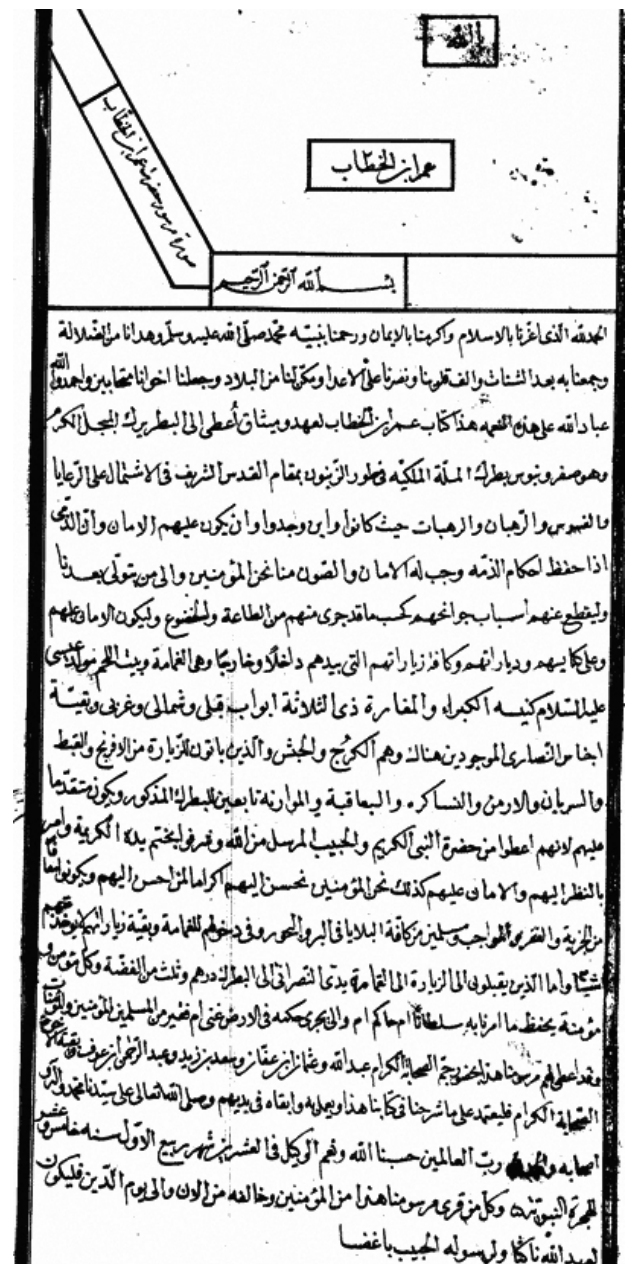 بالله
عمر ابن الخطاب
صورة مرسوم حضرة عمر ابن الخطاب
بسم الله الرحمن الرحيم
الحمد لله الذى اعزنا بالاسلام واكرمنا بالايمان ورحمنا بنبيه محمد صلى الله عليه وسلم وهدانا من الضلالة
وجمعنا به بعد الشتات والف قلوبنا ونصرنا على الاعدا ومكن لنا من البلاد وجعلنا اخوانا متحابين واحمدوا الله
عباد الله على هذه النعمه هذا كتاب عمر ابن الخطاب لعهد وميثاق أعطى الى البطريرك المبجل المكرم
وهو صفرونيوس بطرك الملة الملكيه فى طور الزيتون بمقام القدس الشريف فى الاشتمال على الرعايا
والقسوس والرهبان والرهبات حيث كانوا واين وجدوا وان يكون عليهم الامان وان الذمى
اذا حفظ احكام الذمه وجب له الامان والصون منا نحن المؤمنين والى من يتولى بعدنا
وليقطع عنهم اسباب جوانحهم كحسب ما قد جرى منهم من الطاعة والخضوع وليكون الامان عليهم
وعلى كنايسهم ودياراتهم وكافة زياراتهم التى بيدهم داخلا وخارجا وهى القمامة وبيت اللحم مولد عيسى
عليه السلام كنيسه الكبراء والمغارة ذى الثلاثة ابواب قبلى وشمالى وغربى وبقية
اجناس النصارى الموجودين هناك وهم الكرج والحبش والذين ياتون للزيارة من الافرنج والقبط
والسريان والارمن والنساكره واليعاقبة والموارنه تابعين للبطرك المذكور ويكون متقدما
عليهم لانهم اعطوا من حضرة النبى الكريم والحبيب المرسل من الله وشرفوا بختم يده الكريمة وامر
بالنظر اليهم والامان عليهم كذلك نحن المؤمنين نحسن اليهم اكراما لمن احسن اليهم ويكونوا معافا
من الجزية والغفر والمواجب ومسلمين من كافة البلايا فى البر والبحور وفى دخولهم للقمامة وبقية زياراتهم لا يوخذ منهم
شيئا واما الذين يقبلون الى الزيارة الى القمامة يدى النصرانى الى البطرك درهم وثلث من الفضة وكل مؤمن و
مؤمنة يحفظ ما امرنا به سلطانا ام حاكم ام والى يجرى حكمه فى الارض غنى ام فقير من المسلمين المؤمنين والمؤمنات
وقد اعطى لهم مرسومنا هذا بحضور جم الصحابة الكرام عبد الله وعثمان ابن عفان وسعد بن زيد وعبد الرحمن ابن عوف وبقية الاخوة
الصحابة الكرام فليعتمد على ما شرحنا فى كتابنا هذا ويعمل به وابقاه فى يديهم وصلى الله تعالى على سيدنا محمد واله و
اصحابه والحمد لله رب العالمين حسبنا الله ونعم الوكيل فى العشرين شهر ربيع الاول سنه خامس وعشر
للهجرة النبوية وكل من قرى مرسومنا هذا من المؤمنين وخالفه من الان والى يوم الدين فليكون
لعهد الله ناكثا ولرسوله الحبيب باغضا